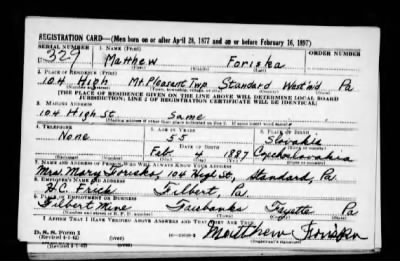 REGISTRATION CARD—(Men born on or after April 28, 1877 and on or before February 16, 1897)
SERIAL NUMBER 1. NAME (Print) ORDER NUMBER
329 Matthew Foriska
2. PLACE OF RESIDENCE (Print)
104 High Mt Pleasant Twp Standard West'm'd Pa
[THE PLACE OF RESIDENCE GIVEN ON THE LINE ABOVE WILL DETERMINE LOCAL BOARD
JURISDICTION; LINE 2 OF REGISTRATION CERTIFICATE WILL BE IDENTICAL]
3. MAILING ADDRESS
104 High St Same
4. TELEPHONE 5. AGE IN YEARS 6. PLACE OF BIRTH
None 55 Slovakia
DATE OF BIRTH
Feb 4 1887 Czechoslovakia
7. NAME AND ADDRESS OF PERSON WHO WILL ALWAYS KNOW YOUR ADDRESS
Mrs Mary Foriska, 104 High St, Standard, Pa.
8. EMPLOYER'S NAME AND ADDRESS
H.C. Frick Filbert, Pa.
9. PLACE OF EMPLOYMENT OR BUSINESS
Filbert Mine Fairbanks Fayette Pa
I AFFIRM THAT I HAVE VERIFIED ABOVE ANSWERS AND THAT THEY ARE TRUE.
D. S. S. Form 1
(Revised 4-1-42) (over) Matthew Foriska